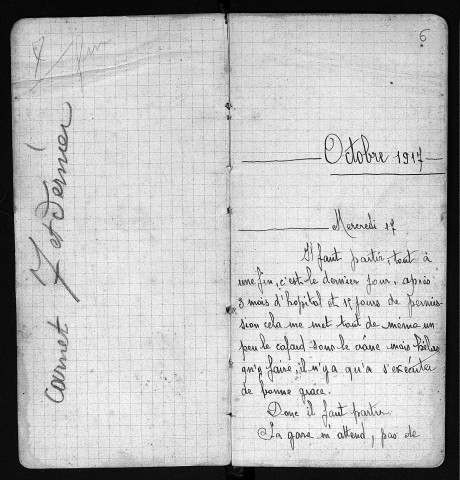 fin
carnet 7 et dernier
6
Octobre 1917
Mercredi 17
Il faut partir, tout à
une fin, c'est le dernier jour. après
3 mois d'hopital et 15 jours de permis-
sion cela me met tout de même un
peu le cafard sous le crâne mais hélas
qu'y faire, il n'y a qu'a s'exécuter
de bonne grâce.
Donc il faut partir
La gare m'attend, pas de